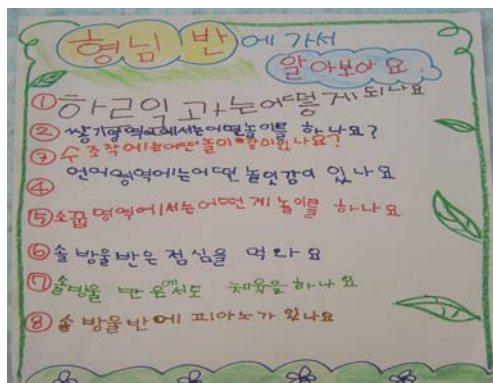 형님 반에 가서
알아보아요
① 하루일과는어떻게되나요
② 쌓기영역에서는어떤놀이를 하나요?
③ 수조작에는어떤놀이감이있나요?
④ 언어영역에는어떤 놀잇감이 있나요
⑤ 소꿉영역에서는어떤게 놀이를 하나요
⑥ 솔방울반은점심을 먹나요
⑦ 솔방울 반 에서도 체육을하나요
⑧ 솔방울반에 피아노가 있나요